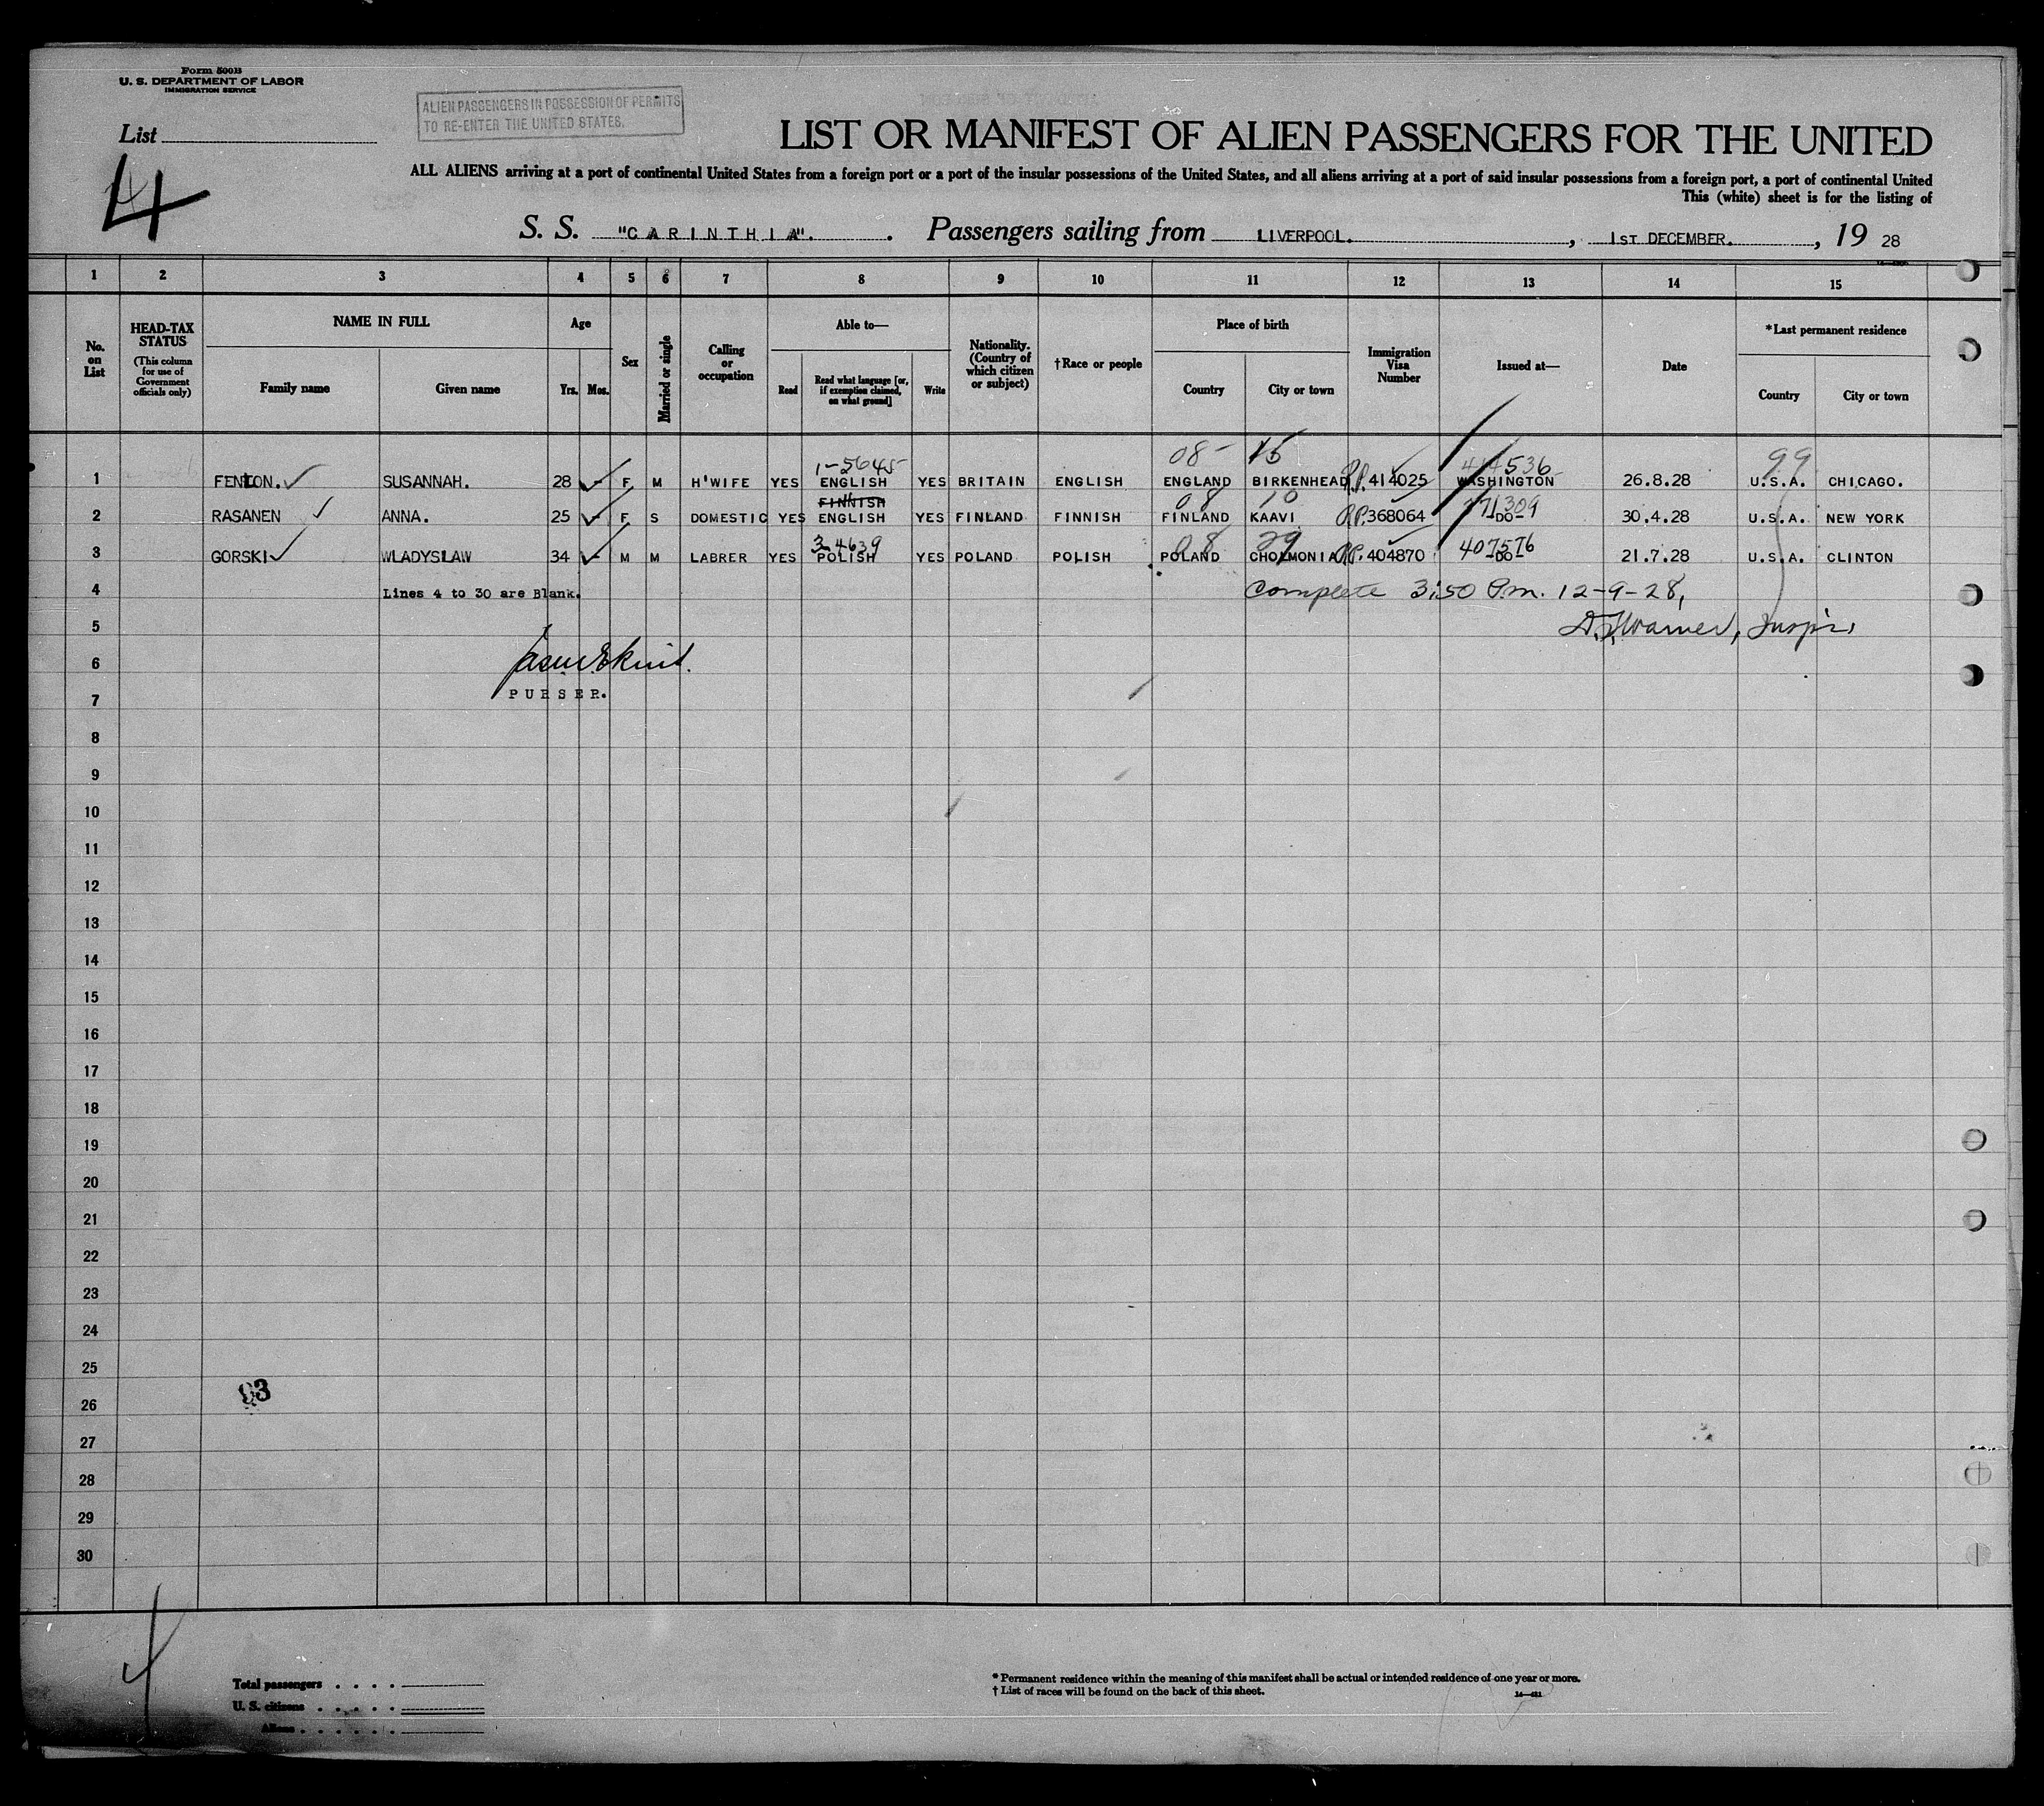 Form 500B
U. S. DEPARTMENT OF LABOR
IMMIGRATION SERVICE
ALIEN PASSENGERS IN POSSESSION OF PERMITS
TO RE-ENTER THE UNITED STATES.
List
4
LIST OR MANIFEST OF ALIEN PASSENGERS FOR THE UNITED
ALL ALIENS arriving at a port of continental United States from a foreign port or a port of the insular possessions of the United States, and all aliens arriving at a port of said insular possessions from a foreign port, a port of continental United
This (white) sheet is for the listing of
S. S. "CARINTHIA". Passengers sailing from LIVERPOOL. , 1ST DECEMBER. , 19 28
1 2 3 4 5 6 7 8 9 10 11 12 13 14 15
No. on List
HEAD-TAX STATUS (This column for use of Government officials only)
NAME IN FULL
Family name Given name
Age
Yrs. Mos.
Sex
Married or single
Calling or occupation
Able to—
Read Read what language [or, if exemption claimed, on what ground] Write
Nationality. (Country of which citizen or subject)
†Race or people
Place of birth
Country City or town
Immigration Visa Number
Issued at—
Date
*Last permanent residence
Country City or town
1-5645 08- 15 536 99
1 FENTON. SUSANNAH. 28 - F M H'WIFE YES ENGLISH YES BRITAIN ENGLISH ENGLAND BIRKENHEAD P.P. 414025 WASHINGTON 26.8.28 U.S.A. CHICAGO.
FINNISH 08 10 309
2 RASANEN ANNA. 25 - F S DOMESTIC YES ENGLISH YES FINLAND FINNISH FINLAND KAAVI P.P. 368064 -DO- 30.4.28 U.S.A. NEW YORK
3-4639 08 29 407576
3 GORSKI WLADYSLAW 34 - M M LABRER YES POLISH YES POLAND POLISH POLAND CHOLMONIA P.P. 404870 DO 21.7.28 U.S.A. CLINTON
4 Lines 4 to 30 are Blank. Complete 3:50 P.m. 12-9-28,
5 Warner, Inspr.
6
7 PURSER.
8
9
10
11
12
13
14
15
16
17
18
19
20
21
22
23
24
25
26 93
27
28
29
30
4
Total passengers
U. S. citizens
Aliens
* Permanent residence within the meaning of this manifest shall be actual or intended residence of one year or more.
† List of races will be found on the back of this sheet.